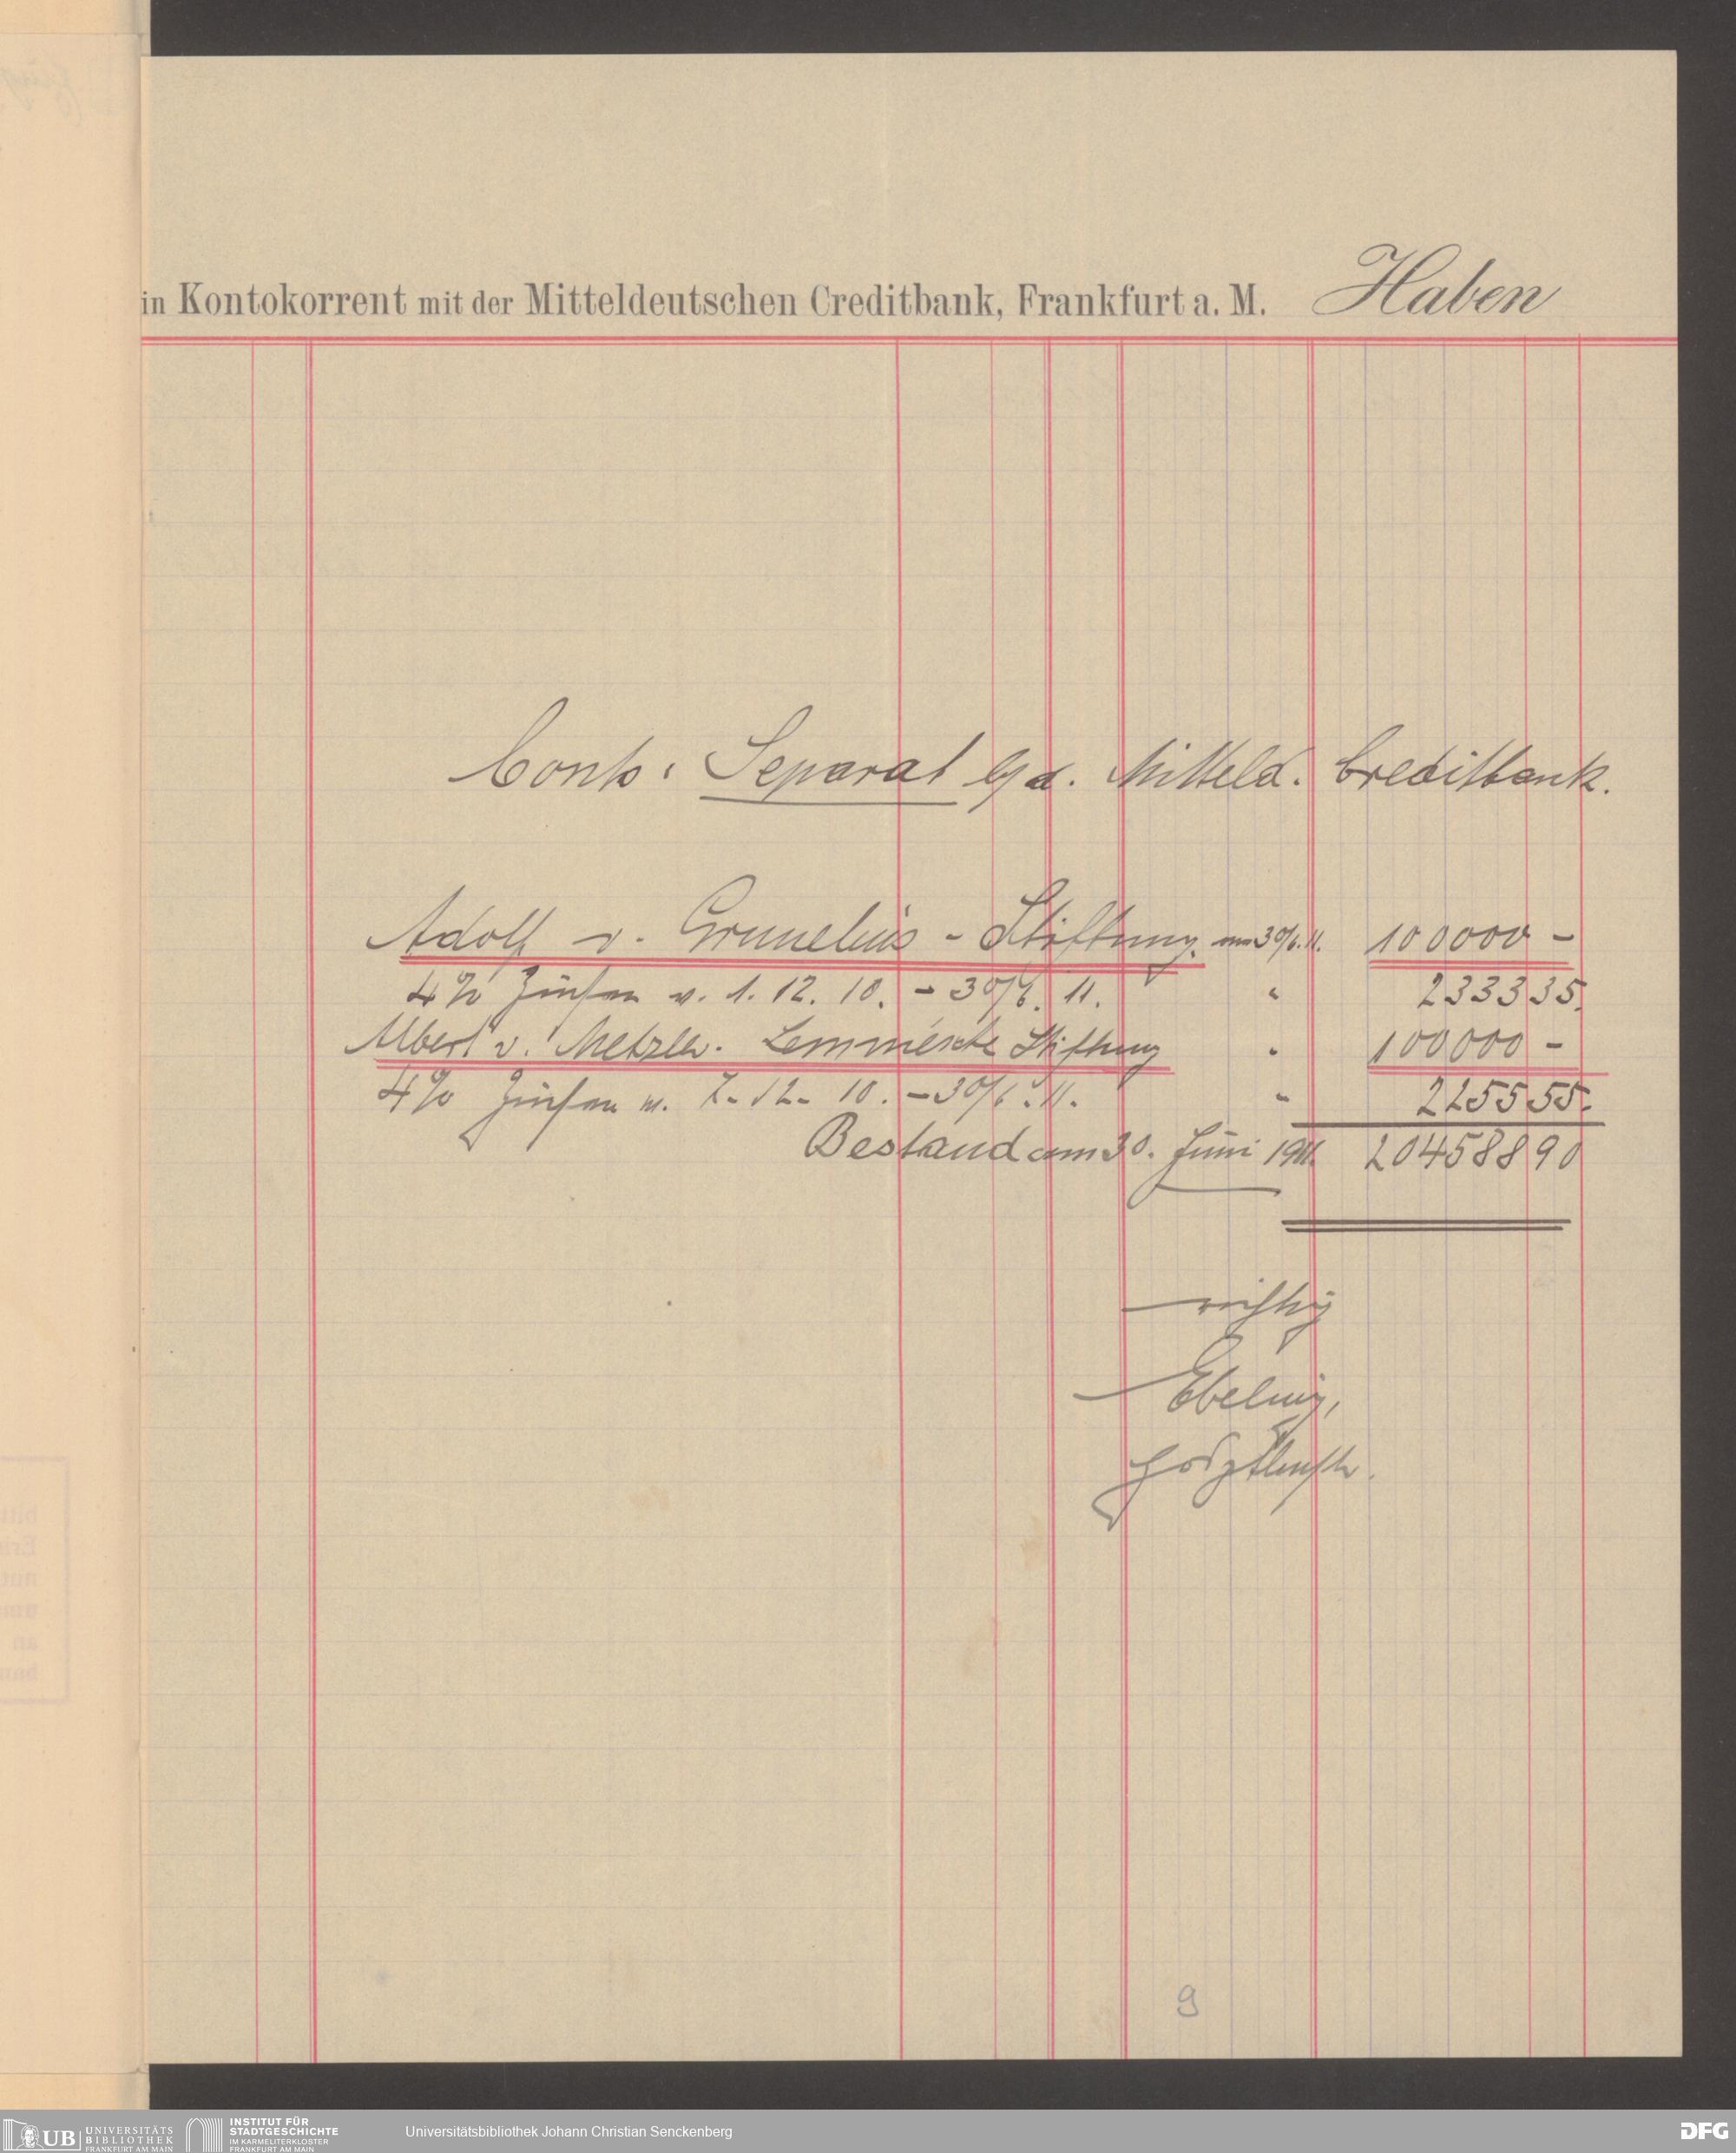 in Kontokorrent mit der Mitteldeutschen Creditbank, Frankfurt a. M. Haben
Conto: Separat b/d. Mitteld. Creditbank.
Adolf v. Grunelius - Stiftung. am 30/6. 11. 100000 -
4% Zinsen v. 1. 12. 10. - 30/6. 11. " 2333 35.
Albert v. Metzler. Lemmésche Stiftung " 100000 -
4% Zinsen v. 7. 12. 10. - 30/6. 11. " 2255 55.
Bestand am 30. Juni 1911. 204588 90
richtig
Ebeling,
9
UB UNIVERSITÄTS
BIBLIOTHEK
FRANKFURT AM MAIN
INSTITUT FÜR
STADTGESCHICHTE
IM KARMELITERKLOSTER
FRANKFURT AM MAIN
Universitätsbibliothek Johann Christian Senckenberg
DFG